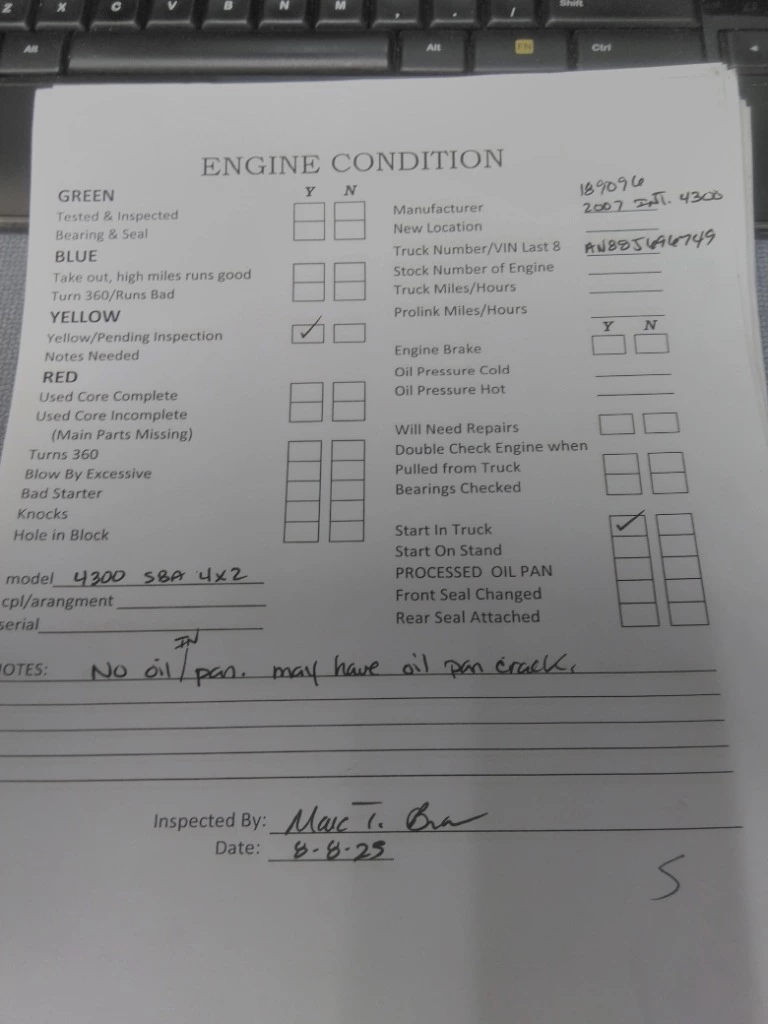 Z X C V B N M , . / Shift
Alt Alt FN Ctrl
ENGINE CONDITION
Y N
GREEN
Tested & Inspected
Bearing & Seal
BLUE
Take out, high miles runs good
Turn 360/Runs Bad
YELLOW
Yellow/Pending Inspection
Notes Needed
RED
Used Core Complete
Used Core Incomplete
(Main Parts Missing)
Turns 360
Blow By Excessive
Bad Starter
Knocks
Hole in Block
model 4300 SBA 4x2
cpl/arangment
serial
189096
Manufacturer 2007 INT. 4300
New Location
Truck Number/VIN Last 8
Stock Number of Engine
Truck Miles/Hours
Prolink Miles/Hours
Y N
Engine Brake
Oil Pressure Cold
Oil Pressure Hot
Will Need Repairs
Double Check Engine when
Pulled from Truck
Bearings Checked
Start In Truck
Start On Stand
PROCESSED OIL PAN
Front Seal Changed
Rear Seal Attached
IN
OTES: No oil / pan. may have oil pan crack.
Inspected By: Marc T.
Date: 8-8-25
S